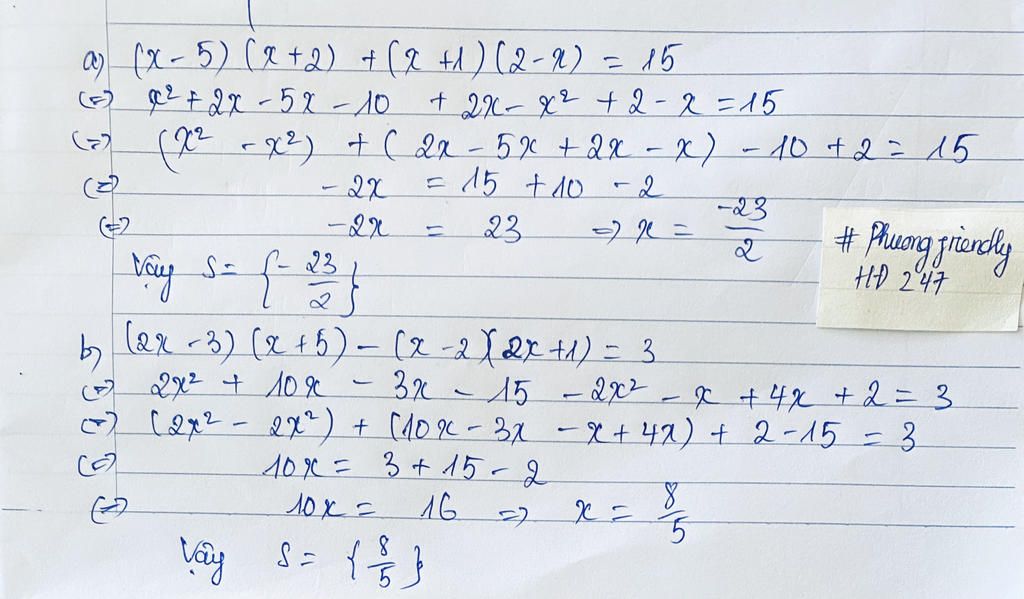 a) (x - 5) (x + 2) + (x + 1) (2 - x) = 15
(=) x² + 2x - 5x - 10 + 2x - x² + 2 - x = 15
(=) (x² - x²) + ( 2x - 5x + 2x - x) - 10 + 2 = 15
(=) - 2x = 15 + 10 - 2
(=) - 2x = 23 => x = -23/2
Vậy S = {- 23/2}
# Phuong friendly
HĐ 247
b) (2x - 3) (x + 5) - (x - 2)(2x + 1) = 3
(=) 2x² + 10x - 3x - 15 - 2x² - x + 4x + 2 = 3
(=) (2x² - 2x²) + (10x - 3x - x + 4x) + 2 - 15 = 3
(=) 10x = 3 + 15 - 2
(=) 10x = 16 => x = 8/5
Vậy S = {8/5}